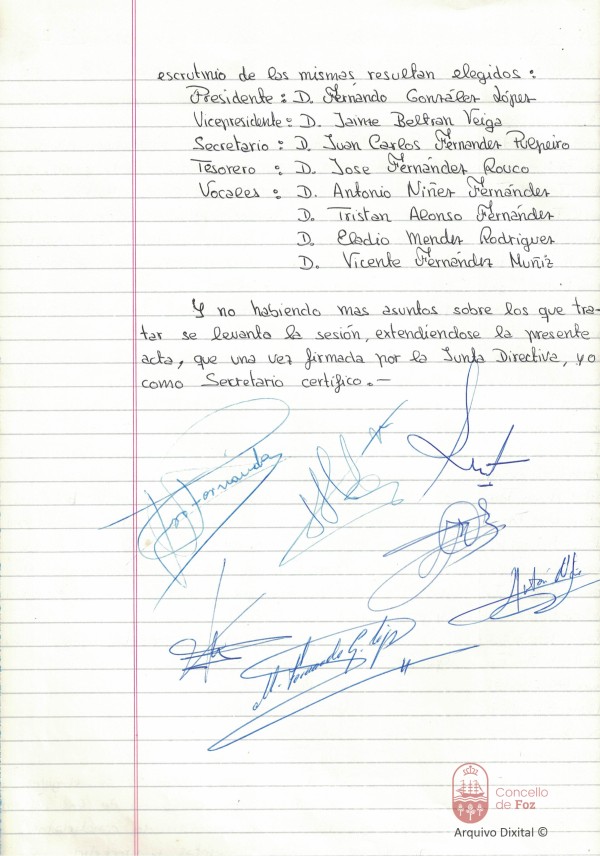 escrutinio de las mismas resultan elegidos:
Presidente: D. Fernando González López
Vicepresidente: D. Jaime Beltran Veiga
Secretario: D. Juan Carlos Fernandez Pulpeiro
Tesorero: D. Jose Fernández Rouco
Vocales: D. Antonio Niñez Fernández
D. Tristan Alonso Fernández
D. Eladio Mendez Rodriguez
D. Vicente Fernández Muñiz
Y no habiendo mas asuntos sobre los que tra-
tar se levanto la sesión, extendiendose la presente
acta, que una vez firmada por la Junta Directiva, yo
como Secretario certifico.-
Fernando G. López
Concello
de Foz
Arquivo Dixital ©